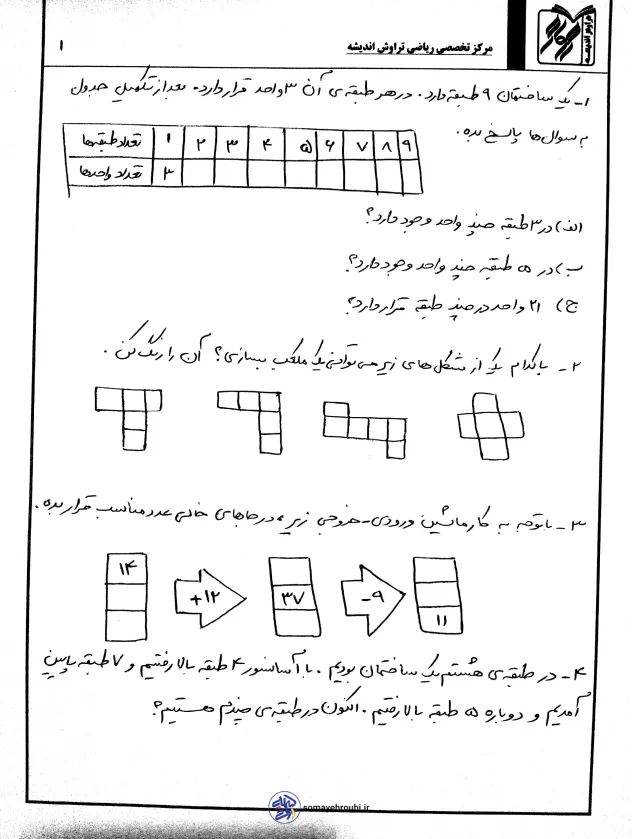 مرکز تخصصی ریاضی تراوش اندیشه
۱
تراوش اندیشه
۱- یک ساختمان ۹ طبقه دارد. در هر طبقه ی آن ۳ واحد قرار دارد. بعد از تکمیل جدول
به سوال ها پاسخ بده.
تعداد طبقه ها ۱ ۲ ۳ ۴ ۵ ۶ ۷ ۸ ۹
تعداد واحدها ۳
الف) در ۳ طبقه چند واحد وجود دارد؟
ب) در ۵ طبقه چند واحد وجود دارد؟
ج) ۲۱ واحد در چند طبقه قرار دارد؟
۲- با کدام یک از شکل های زیر می توانی یک مکعب بسازی؟ آن را رنگ کن.
۳- با توجه به کار ماشین ورودی - خروجی زیر، در جاهای خالی عدد مناسب قرار بده.
۱۴
+۱۲
۳۷
-۹
۱۱
۴- در طبقه ی هشتم یک ساختمان بودیم. با آسانسور ۴ طبقه بالا رفتیم و ۷ طبقه پایین
آمدیم و دوباره ۵ طبقه بالا رفتیم. اکنون در طبقه ی چندم هستیم؟
somayehrouhi.ir